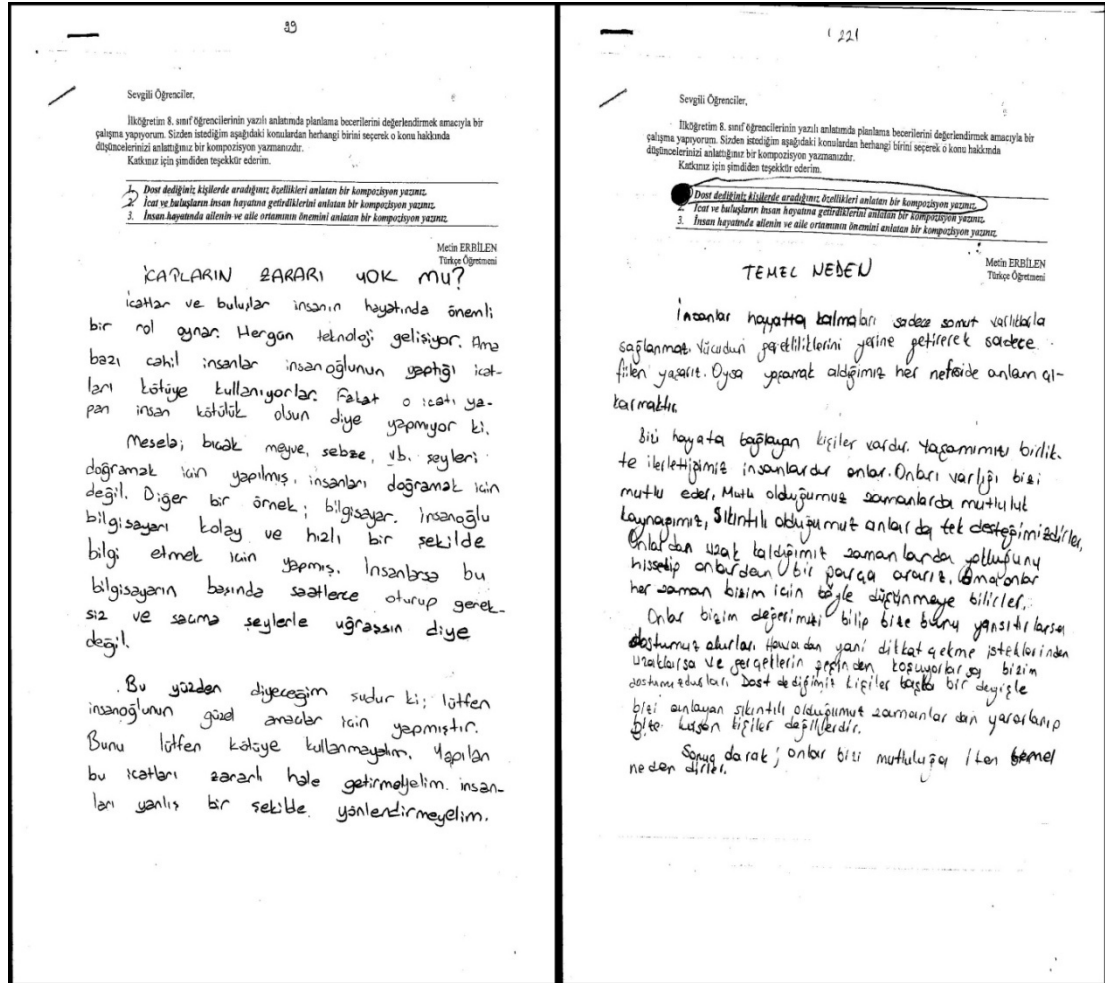 39
Sevgili Öğrenciler,
İlköğretim 8. sınıf öğrencilerinin yazılı anlatımda planlama becerilerini değerlendirmek amacıyla bir
çalışma yapıyorum. Sizden istediğim aşağıdaki konulardan herhangi birini seçerek o konu hakkında
düşüncelerinizi anlattığınız bir kompozisyon yazmanızdır.
Katkınız için şimdiden teşekkür ederim.
1. Dost dediğiniz kişilerde aradığınız özellikleri anlatan bir kompozisyon yazınız.
2. İcat ve buluşların insan hayatına getirdiklerini anlatan bir kompozisyon yazınız.
3. İnsan hayatında ailenin ve aile ortamının önemini anlatan bir kompozisyon yazınız.
Metin ERBİLEN
Türkçe Öğretmeni
İCATLARIN ZARARI YOK MU?
İcatlar ve buluşlar insanın hayatında önemli
bir rol oynar. Hergün teknoloji gelişiyor. Ama
bazı cahil insanlar insanoğlunun yaptığı icat-
ları kötüye kullanıyorlar. Fakat o icatı ya-
pan insan kötülük olsun diye yapmıyor ki.
Mesela; bıçak meyve, sebze, vb. şeyleri
doğramak için yapılmış, insanları doğramak için
değil. Diğer bir örnek; bilgisayar. İnsanoğlu
bilgisayarı kolay ve hızlı bir şekilde
bilgi etmek için yapmış. İnsanlarsa bu
bilgisayarın başında saatlerce oturup gerek-
siz ve saçma şeylerle uğraşsın diye
değil.
Bu yüzden diyeceğim şudur ki; lütfen
insanoğlunun güzel amaçlar için yapmıştır.
Bunu lütfen kötüye kullanmayalım. Yapılan
bu icatları zararlı hale getirmeyelim. insan-
ları yanlış bir şekilde yönlendirmeyelim.
221
Sevgili Öğrenciler,
İlköğretim 8. sınıf öğrencilerinin yazılı anlatımda planlama becerilerini değerlendirmek amacıyla bir
çalışma yapıyorum. Sizden istediğim aşağıdaki konulardan herhangi birini seçerek o konu hakkında
düşüncelerinizi anlattığınız bir kompozisyon yazmanızdır.
Katkınız için şimdiden teşekkür ederim.
Dost dediğiniz kişilerde aradığınız özellikleri anlatan bir kompozisyon yazınız.
2. İcat ve buluşların insan hayatına getirdiklerini anlatan bir kompozisyon yazınız.
3. İnsan hayatında ailenin ve aile ortamının önemini anlatan bir kompozisyon yazınız.
Metin ERBİLEN
Türkçe Öğretmeni
TEMEL NEDEN
İnsanlar hayatta kalmaları sadece somut varlıklarla
sağlanmaz. Vücudun gerekliliklerini yerine getirerek sadece
fiilen yaşarız. Oysa yaşamak aldığımız her nefeside anlam çı-
karmaktır.
Bizi hayata bağlayan kişiler vardır. Yaşamımızı birlik-
te ilerlettiğimiz insanlardır onlar. Onları varlığı bizi
mutlu eder. Mutlu olduğumuz zamanlarda mutluluk
kaynağımız, sıkıntılı olduğumuz anlar da tek desteğimizdirler.
Onlardan uzak kaldığımız zamanlarda yokluğunu
hissedip onlardan bir parça ararız. Ama onlar
her zaman bizim için böyle düşünmeye bilirler.
Onlar bizim değerimizi bilip bize bunu yansıtırlarsa
dostumuz olurlar. Havadan yani dikkat çekme isteklerinden
uzaklarsa ve gerçeklerin peşinden koşuyorlarsa bizim
dostumuzdurlar. Dost dediğimiz kişiler başka bir deyişle
bizi anlayan sıkıntılı olduğumuz zamanlar dan yararlanıp
bize kişiler değillerdir.
Sonuç olarak; onlar bizi mutluluğa iten temel
neden dirler.